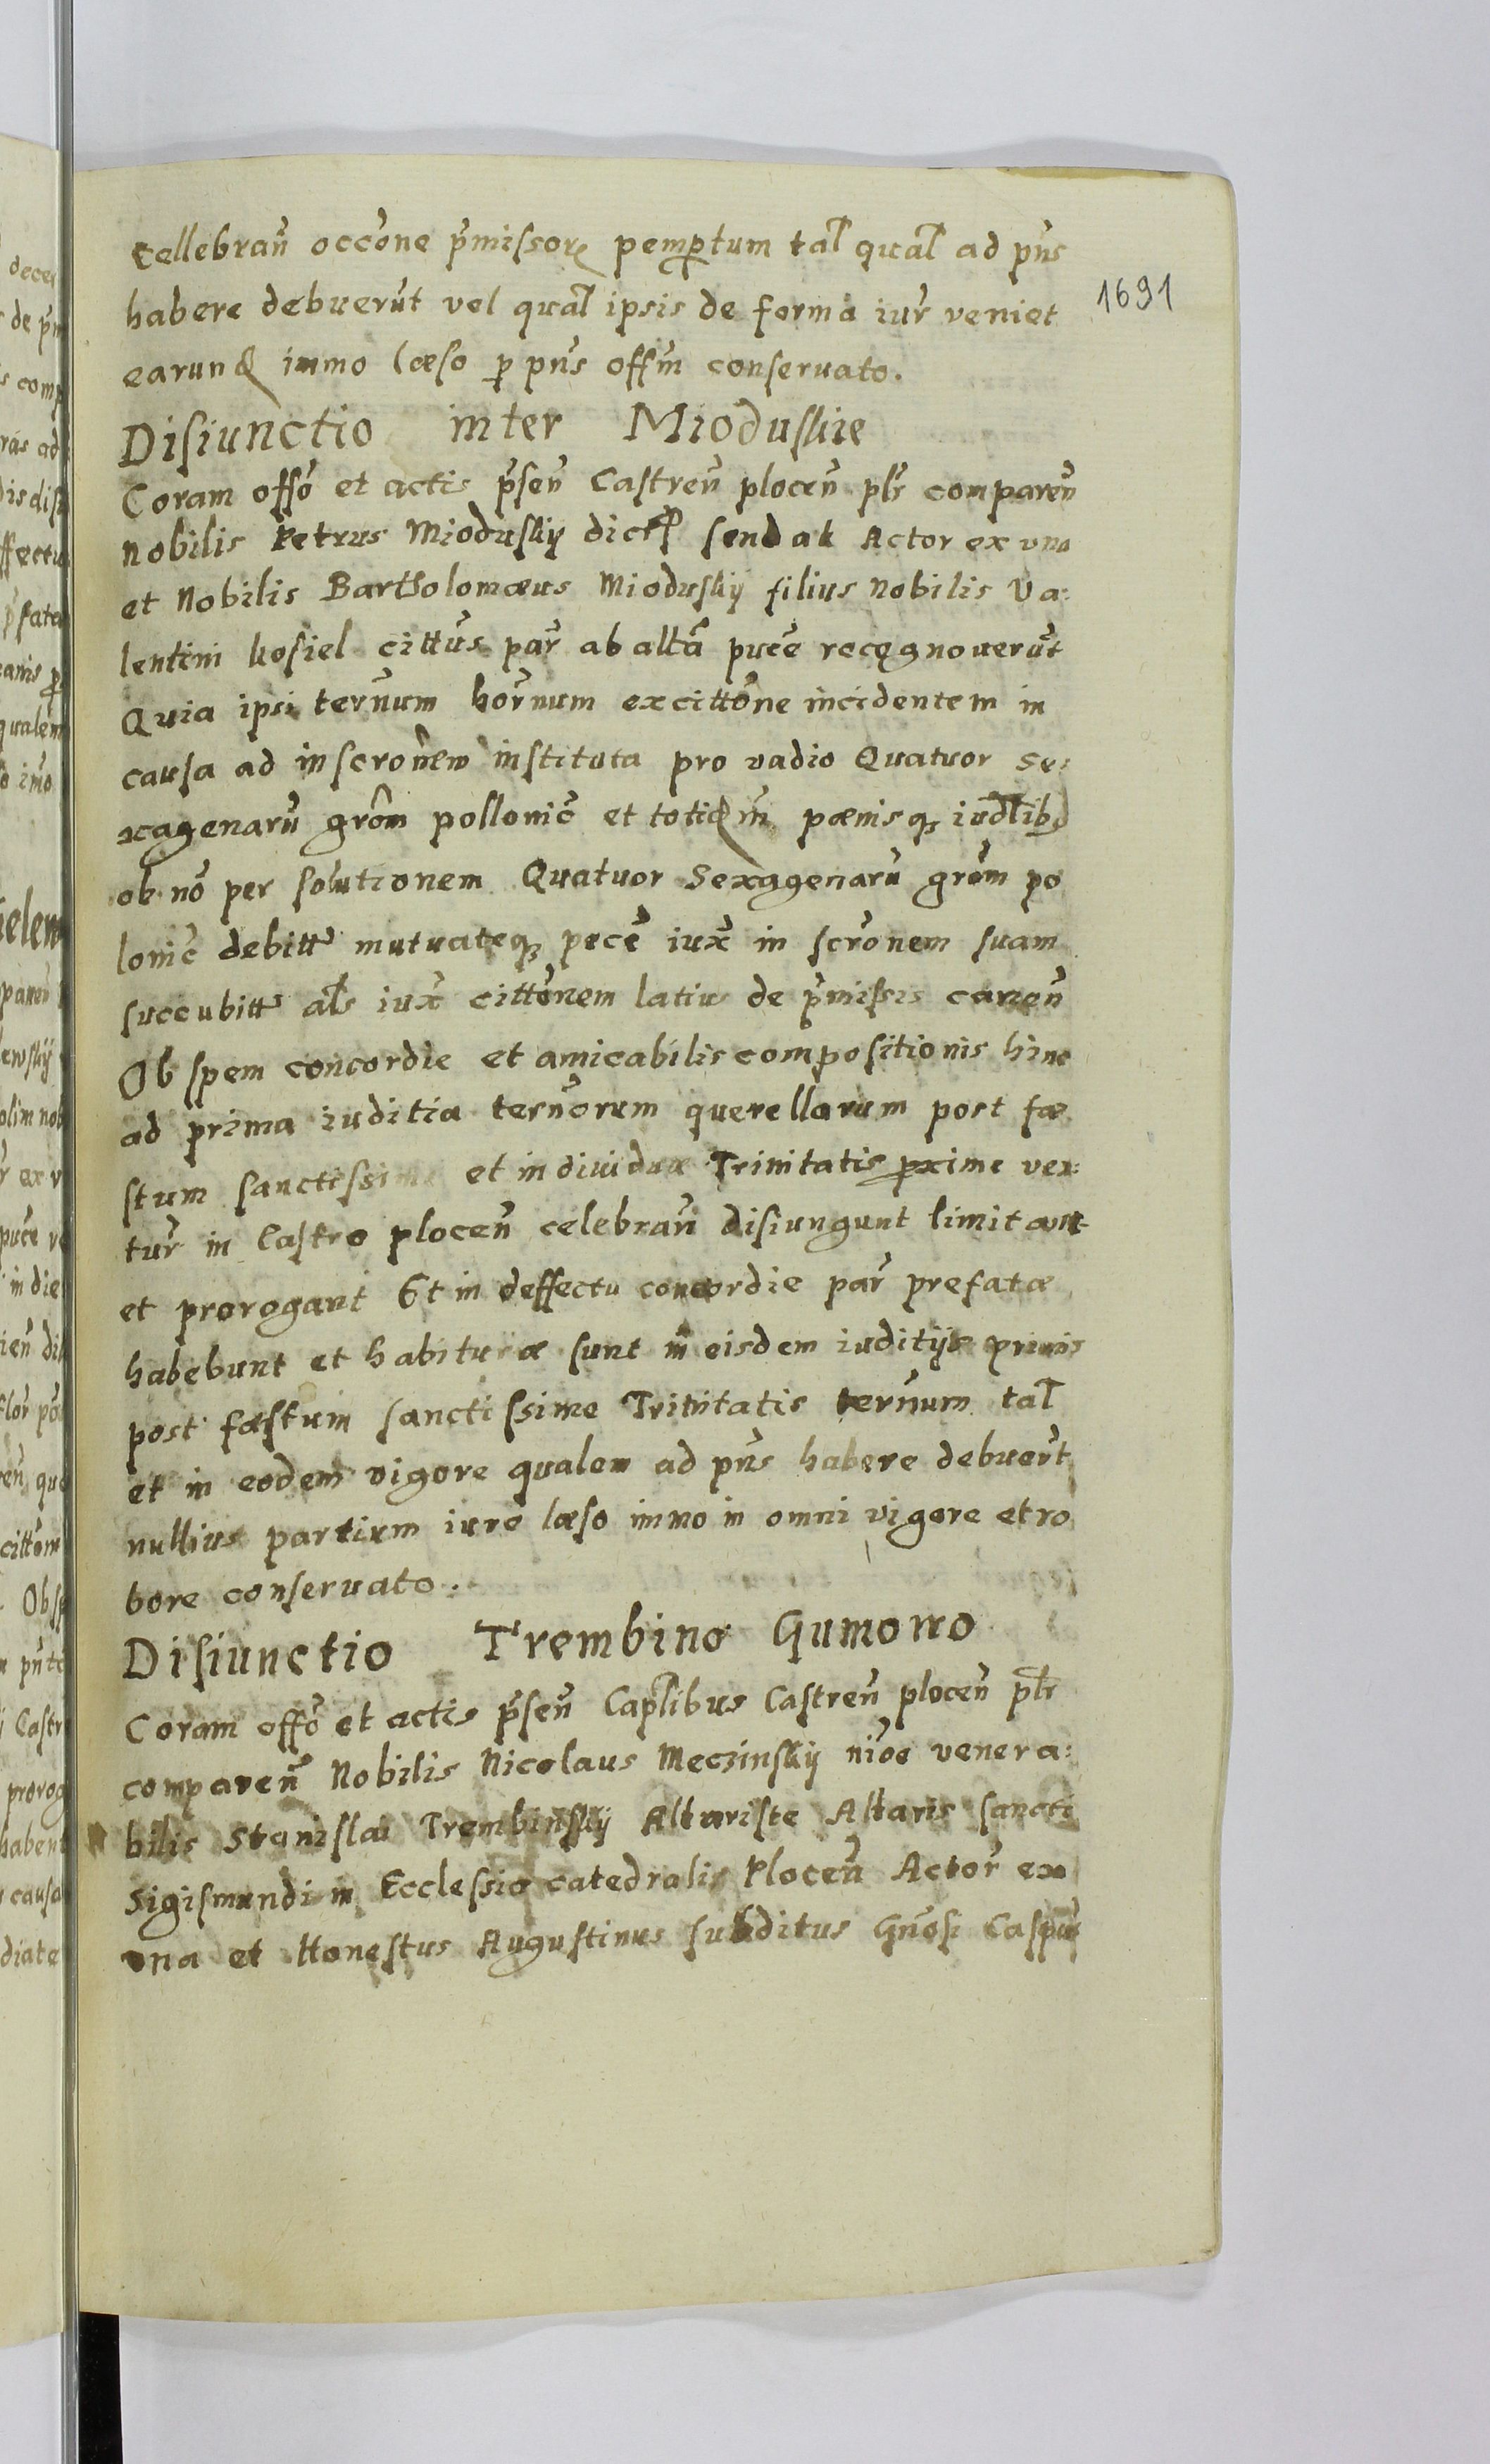 cellebrañ occone p̃missorꝝ pemp̱tum tal̃ qual̃ ad pñs
habere debuerũt vel qual̃ ipsis de forma iur̃ veniet
1691
earund immo læso ꝑ pñs offm̃ conseruato.
Disiunctio inter Mioduskie
Coram offõ et actis p̃señ Castreñ ploceñ plr̃ compareñ
Nobilis Petrus Mioduskij dict9 sendak Actor ex vna
et Nobilis Bartholomæus Mioduskij filius Nobilis Va:
lentini kosiel cittũs par̃ ab altã pucẽ recognouerũt
Quia ipsi terñum horñum ex cittõne incidentem in
causa ad inscroñem instituta pro vadio Quatuor se:
xagenarũ grõm pollonic̃ et totid m̃ pænisqꝫ iudl̃ibꝫ
ob nõ per solutionem Quatuor Sexagenarũ grõm po
lonic̃ debitt mutuateqꝫ pecẽ iux̃ in scrõnem suam
succubitt als̃ iux̃ cittõnem latius de p̃missis caneñ
Ob spem concordie et amicabilis compositionis hinc
ad prima iuditia terñorum querellarum post fæ
stum sanctissime et indiuiduæ Trinitatis ꝓxime ven:
tur̃ in Castro ploceñ celebrañ disiungunt limitant
et prorogant Et in deffectu concordie par̃ prefatæ
habebunt et habituræ sunt in eisdem iuditijs primis
post fæstum sanctissime Trinitatis terñum tal̃
et in eodem vigore qualem ad pñs habere debuert̃
nullius partium iure læso immo in omni vigore et ro
bore conseruato.
Disiunctio Trembino Gumowo
Coram offõ et actis p̃señ Capl̃ibus Castreñ ploceñ plr̃
compareñ Nobilis Nicolaus Meczinskij nioe venera:
bilis Stanislai Trembinskij Altariste Altaris sancti
Sigismundi in Ecclessia catedralis Ploceñ Actor̃ ex
vna et Honestus Augustinus subditus Gñosi Caspar̃